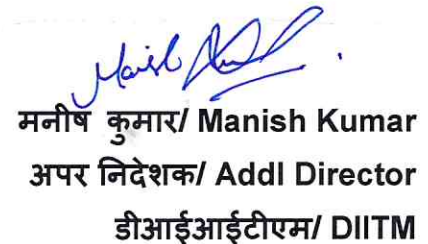 मनीष कुमार/ Manish Kumar
अपर निदेशक/ Addl Director
डीआईआईटीएम/ DIITM